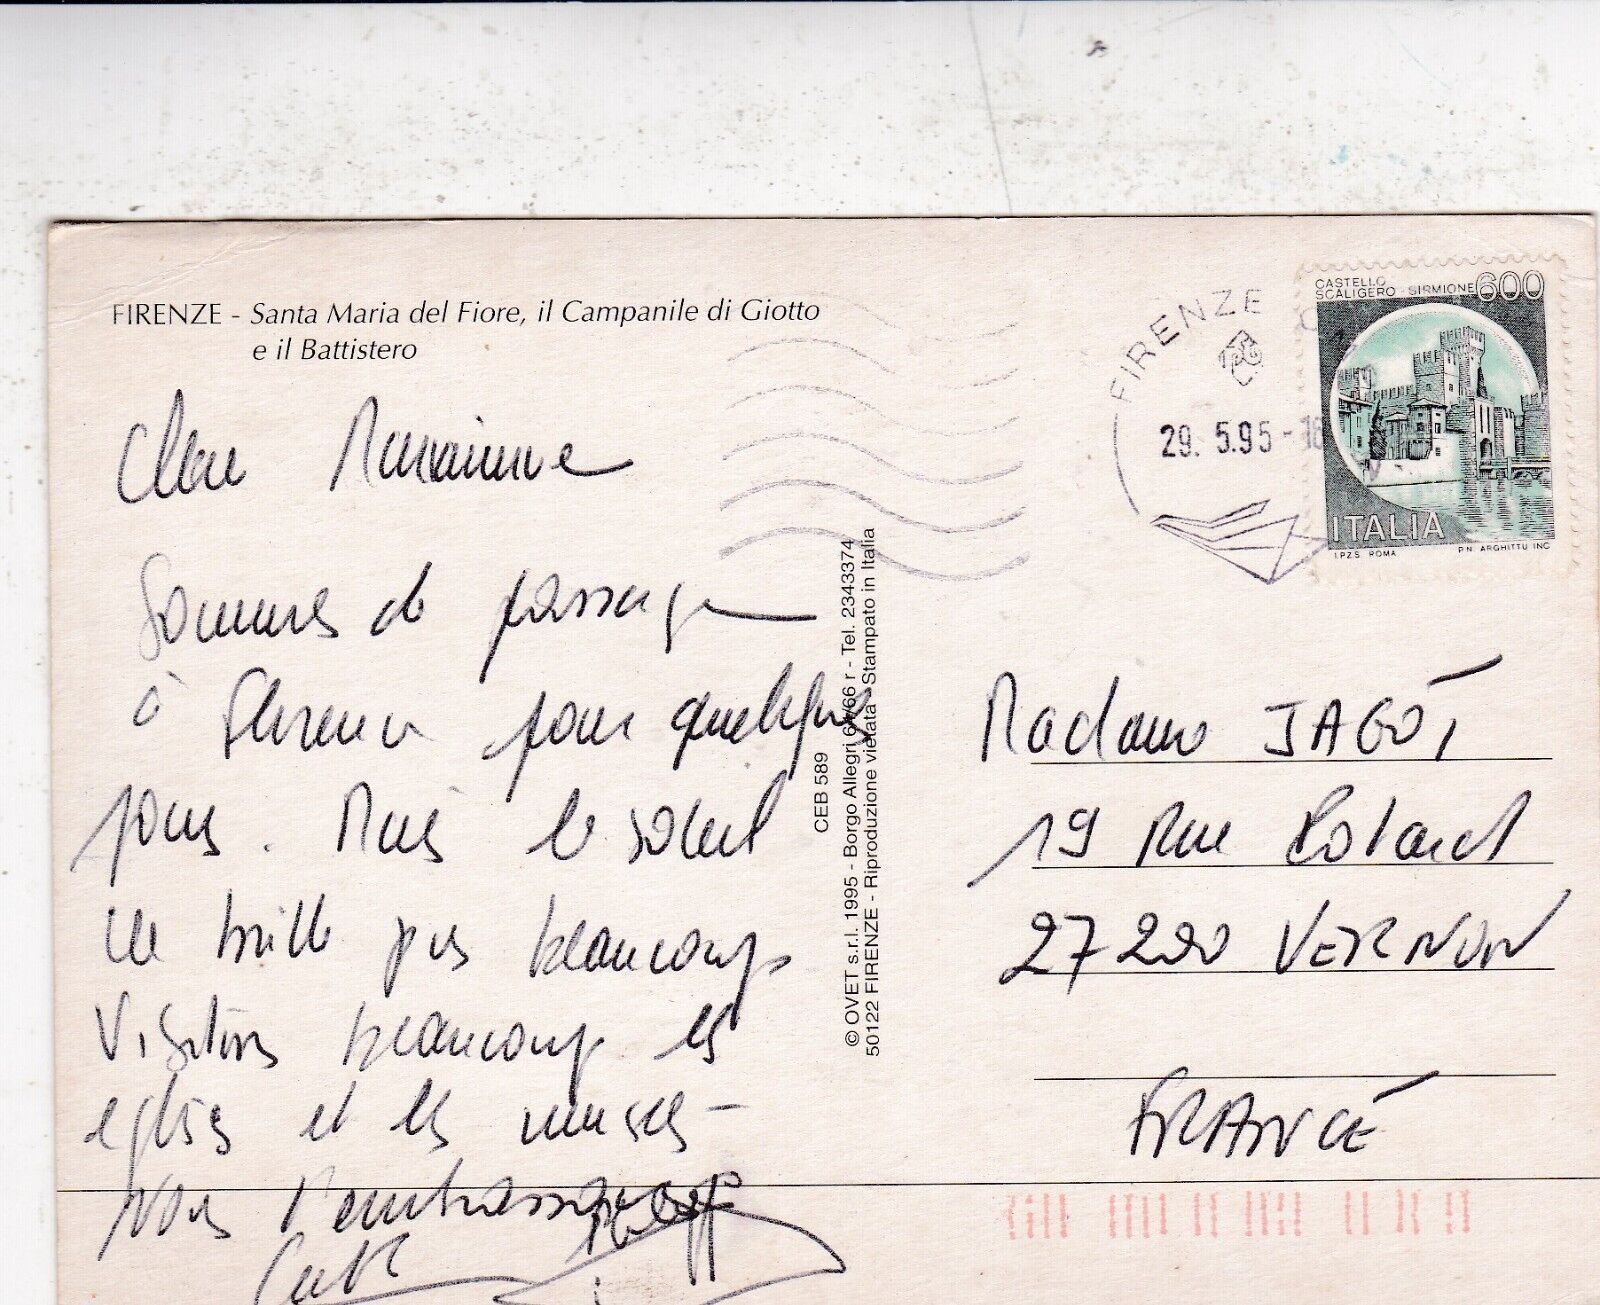 FIRENZE - Santa Maria del Fiore, il Campanile di Giotto
e il Battistero
Sommes de passage
à Florence pour quelques
jours. Mais le soleil
ne brille pas beaucoup
Visitons beaucoup les
eglises et les musées -
Nous t'embrassons
CEB 589
© OVET s.r.l. 1995 - Borgo Allegri 64/66 r - Tel. 2343374
50122 FIRENZE - Riproduzione vietata - Stampato in Italia
FIRENZE
29. 5.95 - 16
CASTELLO
SCALIGERO - SIRMIONE 600
ITALIA
I.P.Z.S. ROMA P.N. ARGHITTU INC.
Madame JAGOT
19 Rue
27200 VERNON
FRANCE